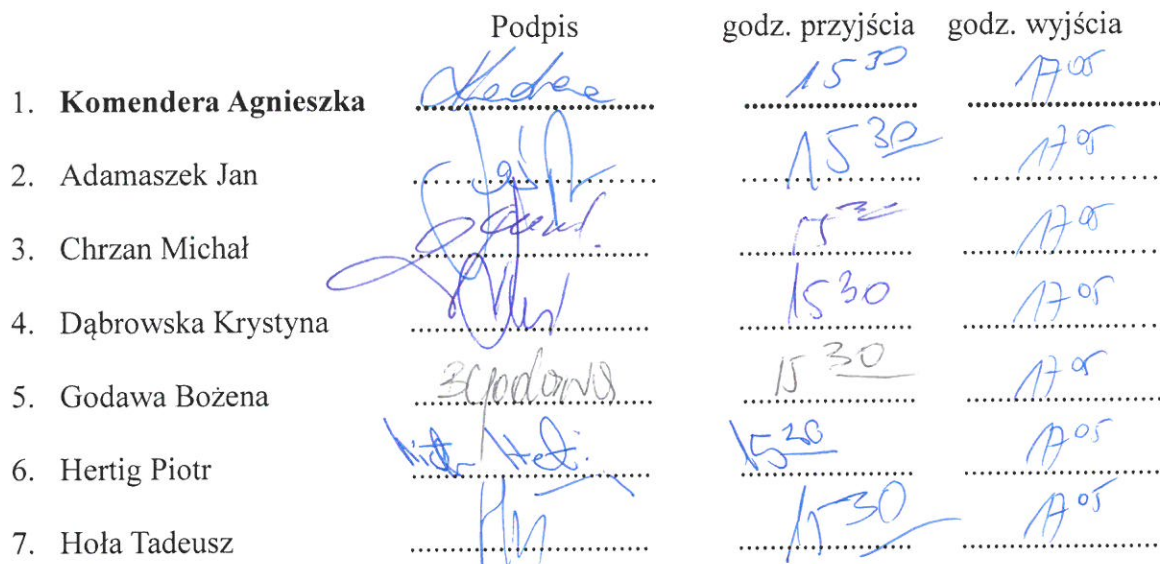 Podpis godz. przyjścia godz. wyjścia
1. Komendera Agnieszka 15 30 17 05
2. Adamaszek Jan 15 30 17 05
3. Chrzan Michał 15 30 17 05
4. Dąbrowska Krystyna 15 30 17 05
5. Godawa Bożena BGodawa 15 30 17 05
6. Hertig Piotr 15 20 17 05
7. Hoła Tadeusz 15 30 17 05